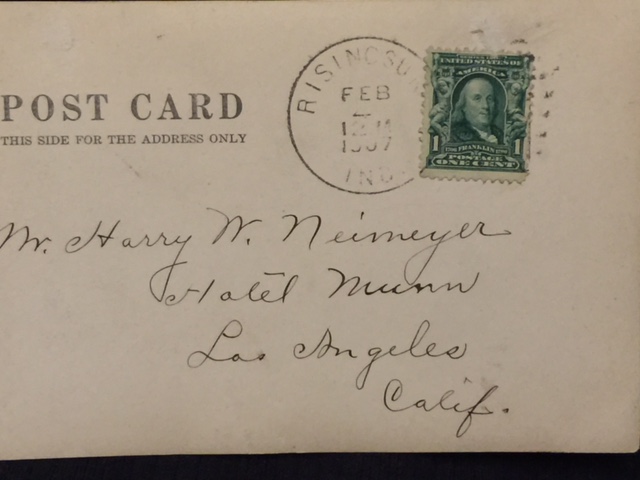 POST CARD
THIS SIDE FOR THE ADDRESS ONLY
RISING SU
FEB
1907
IND
UNITED STATES OF
AMERICA
FRANKLIN
1 1
POSTAGE
ONE CENT
Mr. Harry W. Neimeyer
Hotel Munn
Los Angeles
Calif.